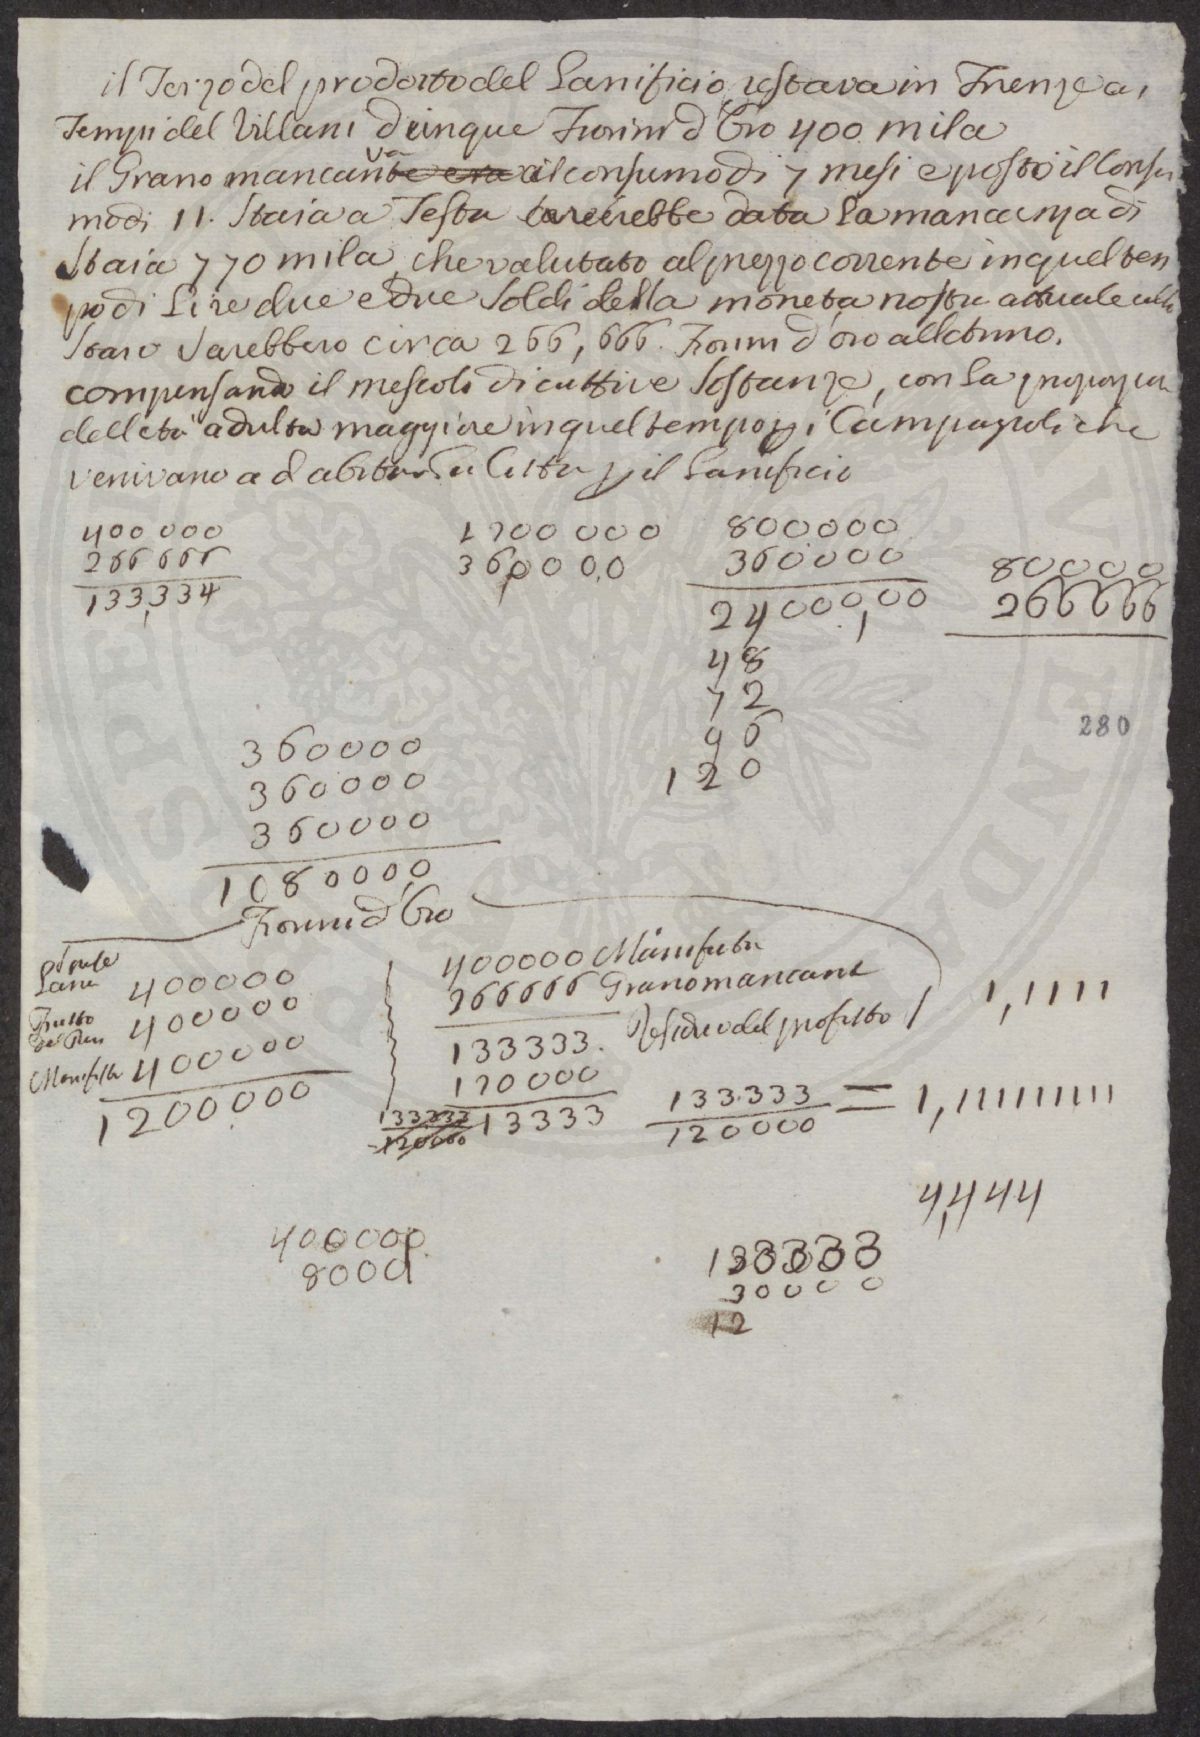 il Terzo del prodotto del Lanificio restava in Firenze a i
Tempi del Villani dunque Fiorini d'Oro 400 mila
il Grano mancava il consumo di 7 mesi e posto il Consu
mo di 11. Staia a Testa sarebbe data la mancanza di
Staia 770 mila, che valutato al prezzo corrente in quel tem
po di Lire due e due Soldi della moneta nostra attuale allo
Staio sarebbero circa 266,666. Fiorini d'oro all'etruno.
compensando il mescolo di cattive Sostanze, con la proporzion
dell età adulta maggiore in quel tempo p i Campagnoli che
venivano ad abitar la Citta p il Lanificio
400000
266666
133,334
1200000
360000
800000
360000
2400000
48
72
96
120
80000
266666
280
360000
360000
360000
1080000
Fiorini d'Oro
Lana 400000
Frutto 400000
Manifattu 400000
1200000
400000 Manifattu
266666 Grano mancant
133333. Residuo del profitto
120000
13333
133333
120000
1,1111
133333
120000 = 1,111111111
4,444
400000
8000
133333
30000
12